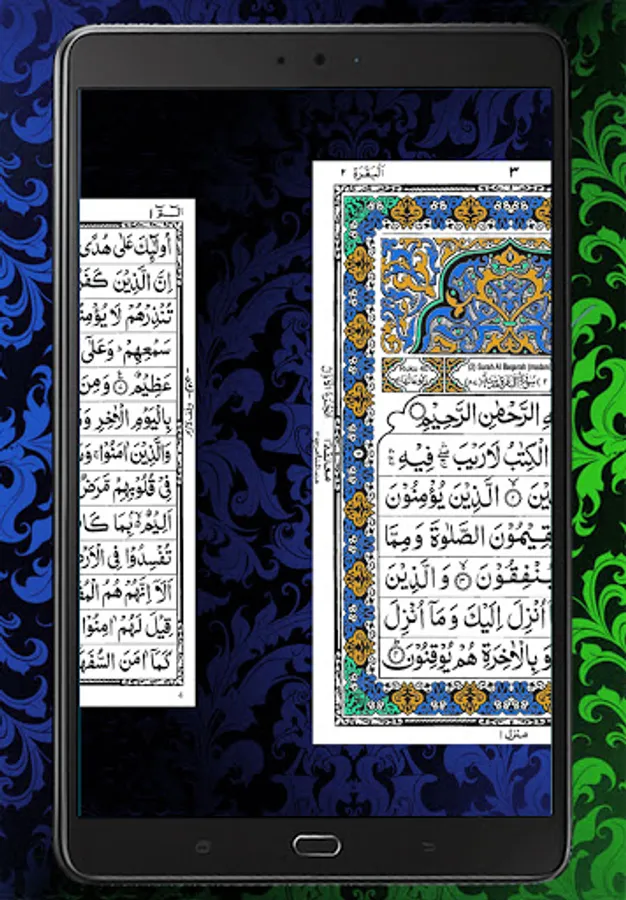 ٣ اَلْبَقَرَة ٢
(2) Surah Al Baqarah (madani
هِ الرَّحْمٰنِ الرَّحِيْمِ
الْكِتٰبُ لَا رَيْبَ ۛ فِيْهِ
يْنَ ۙ الَّذِيْنَ يُؤْمِنُوْنَ
قِيْمُوْنَ الصَّلٰوةَ وَمِمَّا
يُنْفِقُوْنَ ۙ وَالَّذِيْنَ
اُنْزِلَ اِلَيْكَ وَمَاۤ اُنْزِلَ
وَبِالْاٰخِرَةِ هُمْ يُوْقِنُوْنَ
منزل ١
الٓمّٓ ١
اُولٰٓئِكَ عَلٰى هُدًى
اِنَّ الَّذِيْنَ كَفَ
تُنْذِرْهُمْ لَا يُؤْمِنُ
سَمْعِهِمْ ؕ وَعَلٰٓى
عَظِيْمٌ وَمِنَ
بِالْيَوْمِ الْاٰخِرِ وَ
وَالَّذِيْنَ اٰمَنُوْا ۚ وَ
فِيْ قُلُوْبِهِمْ مَّرَضٌ
اَلِيْمٌۢ ۙ بِمَا كَا
تُفْسِدُوْا فِى الْاَرْ
اَلَاۤ اِنَّهُمْ هُمُ الْمُ
قِيْلَ لَهُمْ اٰمِنُوْا
كَمَاۤ اٰمَنَ السُّفَهَ